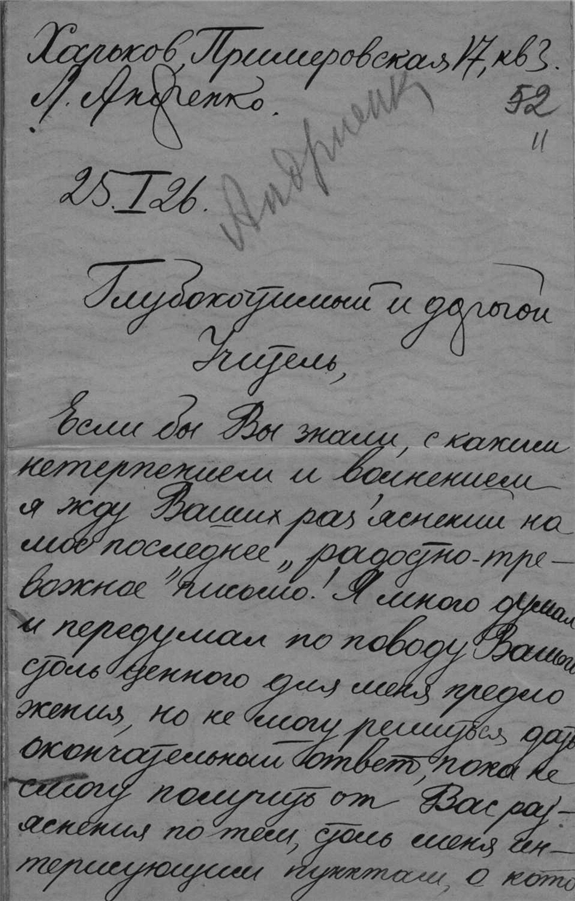 Харьков, Примеровская 17, кв 3.
Л. Андренко.
52
11
Андриенк
25.I 26.
Глубокочтимый и дорогой
Учитель,
Если бы Вы знали, с каким
нетерпением и волнением
я жду Ваших раз'яснений на
мое последнее „радостно-тре-
вожное" письмо! Я много думал
и передумал по поводу Вашего
столь ценного для меня предло
жения, но не могу решиться дать
окончательный ответ, пока не
смогу получить от Вас раз'-
яснения по тем, столь меня ин-
терисующим пунктам, о кото